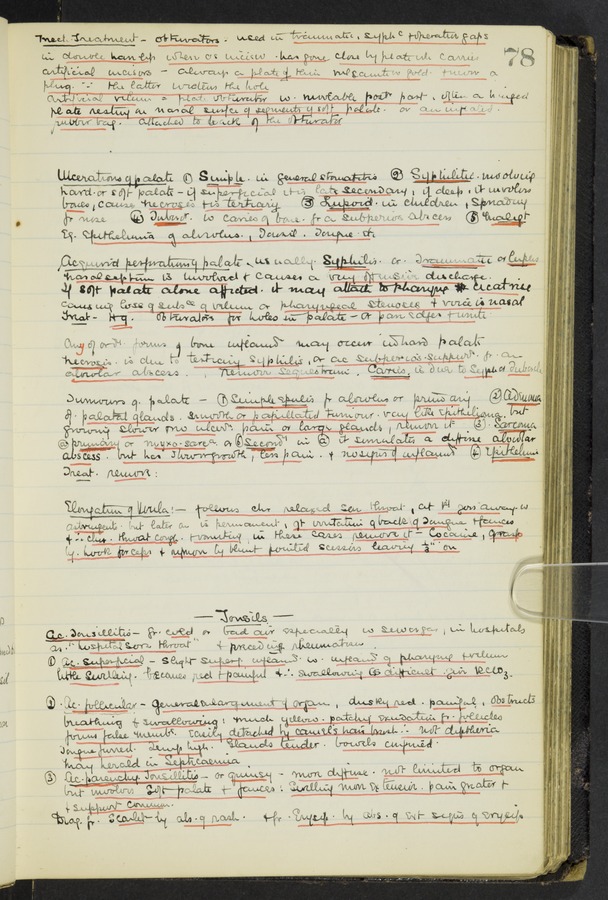 78
Mech. Treatment - obturators. used in traumatic, syph.c & operative gaps
in double harelip where os incisiv. has gone close by plate wh carries
artificial incisors - always a plate of thin vulcanite or gold. & never a
plug. ∵ the latter widens the hole
Artificial velum = plate obturator w. moveable post.r part, often a hinged
plate resting on nasal surface of segments of soft palate. or an inflated
rubber bag. attached to back of the obturator
Ulcerations of palate ① Simple. in general stomatitis ② Syphilitic. involving
hard or soft palate - if superficial it is late secondary, if deep, it involves
bones, causes necrosis & is tertiary ③ Lupoid. in children, spreading
fr nose ④ Tuberc. to caries of bone. fr a subperios abscess ⑤ Malig.t
Eg. Epithelioma of alveolus, Tonsil. Tongue &c.
Acquired perforation of palate. usually. Syphilis. or Traumatic or lupus
Nasal septum is involved & causes a very offensive discharge.
If soft palate alone affected. it may attach to pharynx & cicatrise
causing loss of subs.ce of velum or pharyngeal stenosis & voice is nasal
Treat - Hg. obturators for holes in palate - or pare edges & unite
Any of ord.y forms of bone inflam.n may occur in hard palate
necrosis. is due to tertiary Syphilis, or ac subperios. suppur.n fr. an
alveolar abscess. Remove sequestrum. Caries, is due to Syph or Tubercle
Tumours of palate - ① Simple epulis fr alveolus or prim.y any ② Adenoma
of palatal glands. smooth or papillated tumour. very like epithelioma, but
growing slower one ulcer. pain or large glands, remove it ③ Sarcoma
ⓐ primary or myxo-sarca ⓑ Second.y in ⓐ it simulates a diffuse alveolar
abscess. but has slower growth, less pain. & no signs of inflam.n ④ Epithelioma
Treat. remove:
Elongation of Uvula:- follows chr relaxed sore throat, at 1st goes away w
astringents. but later on is permanent, get irritation of back of tongue & fauces
& ∴ chr. throat cough. & vomiting, in these cases remove it - Cocaine, grasp
by. hook forceps & remove by blunt pointed scissors leaving ½" on
- Tonsils -
Ac. Tonsillitis - fr. cold or bad air especially w sewergas, in hospitals
as. "hospital sore throat" & preceding rheumatism.
① Ac. Superficial - slight superf. inflam.n w. inflam.n of pharynx & velum
little swelling. becomes red & painful & ∴ swallowing is difficult. give KClO3.
② Ac. follicular - general enlargement of organ, dusky red. painful, obstructs
breathing & swallowing: much yellow. patchy exudation fr follicles
forms false memb. easily detached by camel's hair brush ∴ not diptheria
Tongue furred. temp high. Glands tender. bowels confined.
May herald in Septicaemia
③ Ac. parenchy. Tonsillitis - or quinsy - more diffuse. not limited to organ
but involves soft palate & fauces: Swelling more extensive. pain greater &
& suppur.n common.
Diag. fr. Scarlet by abs. of rash. & fr. Erysip. by abs. of ext signs of erysip